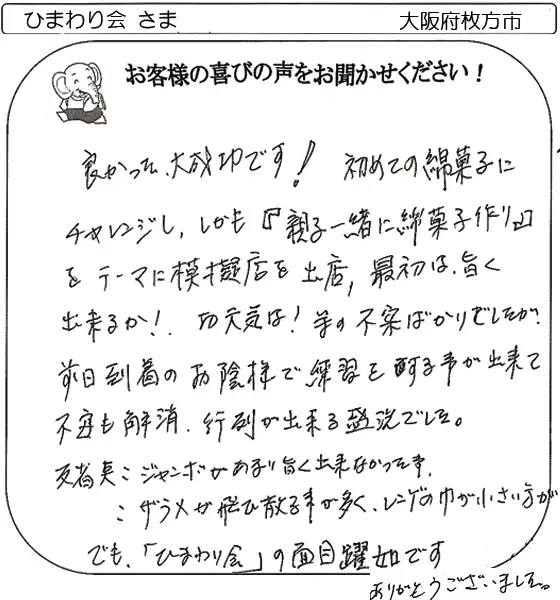 ひまわり会 さま
大阪府枚方市
お客様の喜びの声をお聞かせください！
良かった、大成功です！ 初めての綿菓子に
チャレンジし、しかも『親子一緒に綿菓子作り』
をテーマに模擬店を出店、最初は、旨く
出来るか！、お天気は！等の不安ばかりでしたが、
前日到着のお陰様で練習を する事が出来て
不安も解消、行列が出来る盛況でした。
反省点：ジャンボがあまり旨く出来なかった事、
：ザラメが飛び散る事が多く、 の巾が小さい方が
でも、「ひまわり会」の面目躍如です
ありがとうございました。